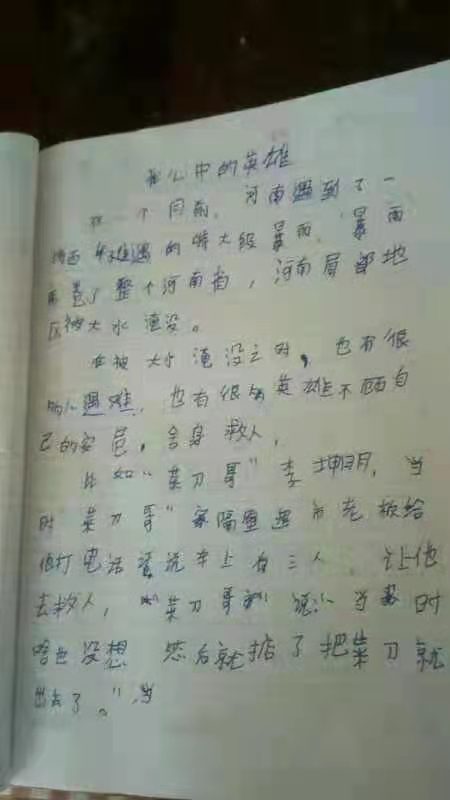 我心中的英雄
在一个月前，河南遇到了一
场百年难遇的特大级暴雨，暴雨
席卷了整个河南省，河南局部地
区被大水淹没。
在被大水淹没之时，也有很
多人遇难，也有很多英雄不顾自
己的安危，舍身救人。
比如“菜刀哥”李坤明，当
时“菜刀哥”家隔壁超市老板给
他打电话说车上有三人，让他
去救人，“菜刀哥”说：“当时
啥也没想，然后就掂了把菜刀就
出去了。”当